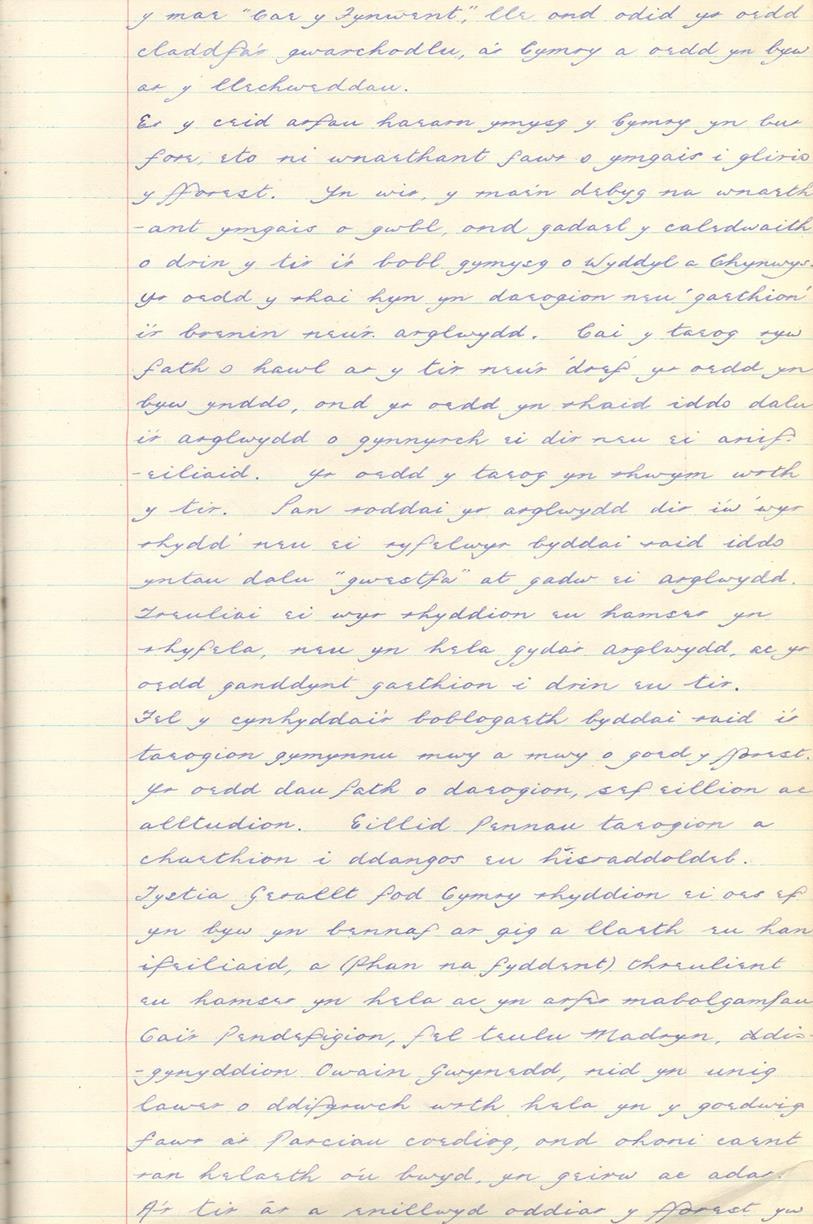 y mae "Cae y Fynwent", lle ond odid yr oedd
claddfa'r gwarchodlu, a'r Cymry a oedd yn byw
ar y llechweddau.
Er y ceid arfau haearn ymysg y Cymry yn bur
fore, eto ni wnaethant fawr o ymgais i glirio
y fforest. Yn wir, y mae'n debyg na wnaeth
-ant ymgais o gwbl, ond gadael y caledwaith
o drin y tir i'r bobl gymysg o Wyddyl a Chynwys.
Yr oedd y rhai hyn yn daeogion neu 'gaethion'
i'r brenin neu'r arglwydd. Cai y taeog ryw
fath o hawl ar y tir neu'r 'dref' yr oedd yn
byw ynddo, ond yr oedd yn rhaid iddo dalu
i'r arglwydd o gynnyrch ei dir neu ei anif-
-eiliaid. Yr oedd y taeog yn rhwym wrth
y tir. Pan roddai yr arglwydd dir i'w 'wyr
rhydd' neu ei ryfelwyr byddai raid iddo
yntau dalu "gwestfa" at gadw ei arglwydd.
Treuliai ei wyr rhyddion eu hamser yn
rhyfela, neu yn hela gyda'r arglwydd, ac yr
oedd ganddynt gaethion i drin eu tir.
Fel y cynhyddai'r boblogaeth byddai raid i'r
taeogion gymynnu mwy a mwy o goed y fforest.
Yr oedd dau fath o daeogion, sef eillion ac
alltudion. Eillid Pennau taeogion a
chaethion i ddangos eu hisraddoldeb.
Tystia Gerallt fod Cymry rhyddion ei oes ef
yn byw yn bennaf ar gig a llaeth eu han
ifeiliaid, a (phan na fyddent) threulient
eu hamser yn hela ac yn arfer mabolgamfau
Cai'r Pendefigion, fel teulu Madryn, ddis-
-gynyddion Owain Gwynedd, nid yn unig
lawer o ddifyrwch wrth hela yn y goedwig
fawr a'r Parciau coediog, ond ohoni caent
ran helaeth o'u bwyd, yn geirw ac adar.
A'r tir âr a enillwyd oddiar y fforest yw